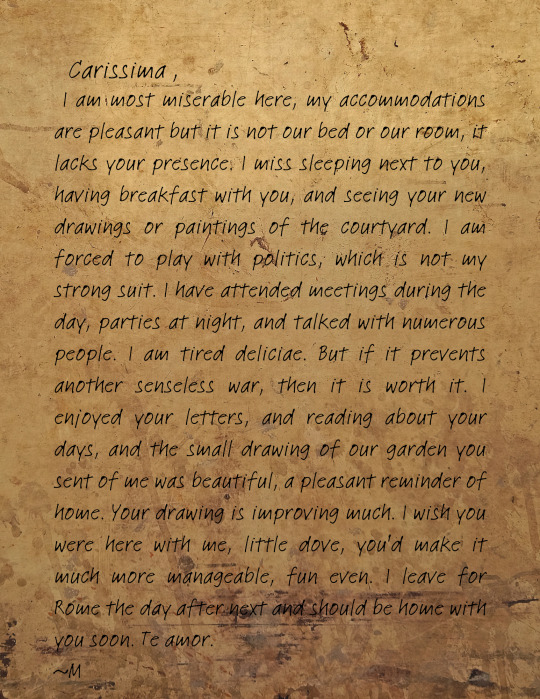 Carissima,
I am most miserable here, my accommodations
are pleasant but it is not our bed or our room, it
lacks your presence. I miss sleeping next to you,
having breakfast with you, and seeing your new
drawings or paintings of the courtyard. I am
forced to play with politics, which is not my
strong suit. I have attended meetings during the
day, parties at night, and talked with numerous
people. I am tired deliciae. But if it prevents
another senseless war, then it is worth it. I
enjoyed your letters, and reading about your
days, and the small drawing of our garden you
sent of me was beautiful, a pleasant reminder of
home. Your drawing is improving much. I wish you
were here with me, little dove, you'd make it
much more manageable, fun even. I leave for
Rome the day after next and should be home with
you soon. Te amor.
~M